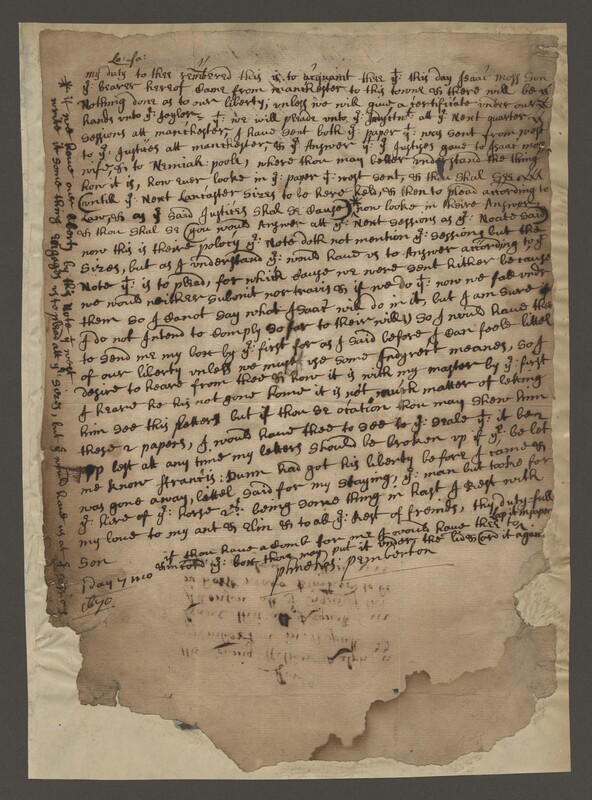 Lo: fa:
my duty to thee rembered this is to acquaint thee yt this day Isaac Moss Son
ye bearer hereof Came from manchester to this towne & there will be
Nothing done as to our liberty, unless we will give a sertificate under our
hands unto ye Jaylor yt we will pleade unto ye att ye Next quarter
Sessions att manchester, I have sent both ye paper yt was sent from west
to ye Justices att manchester, & ye Answer yt ye Justices gave to Isaac mos
wife, & to Nemiah: poole, where thou may better understand the thing
how it is, how ever looke in ye paper yt west sent, & thou shal see
untill ye Next Lancaster Sizes to be here held, & then to plead according to
Law, & as ye said Justices shal se Cause) now looke in theire Answer
& thou shal se (you would Answer att ye Next sessions as ye Noate said)
now this is theire policy ye Note doth not mention ye sessions but the
Sizes, but as I understand ye would have us to Answer according to ye
Note yt is to plead, for which Cause we were sent hither because
we would neither submit nor travis & if we do yt now we fall under
them so I Canot say what Isaac will do in it, but I am sure
I do not Intend to Comply so far to their will, so I would have thee
to send me my box by ye first for as I said before I Can feele littel
of our liberty unless we must use some Indyrect meanes, so I
desire to heare from thee & how it is with my master by ye first
I heare he his not gone home it is not much matter of leting
him see this letter but if thou se ocation thou may shew him
these 2 papers, I would have thee to see to ye seale yt it ben
lest att any time my letters should be broken up if yt be let
me know ffrancis: Dunn had got his liberty before I came &
was gone away, littel said for my staying, ye man but tooke for
ye hire of ye horse 2s: being some thing in hast I Rest with
my love to my ant & Elin & to all ye Rest of freinds, thy duty full
Son
if thou have a Comb for me I would have thee to lap it in paper
ye box thou may put it under the lid & cord it again
1 day 7 mo
1670.
phinehas: pemberton
* if we have our liberty by this Note yt west
write it some thing us to plead att ye sizes, but ye would have us at ye sessions